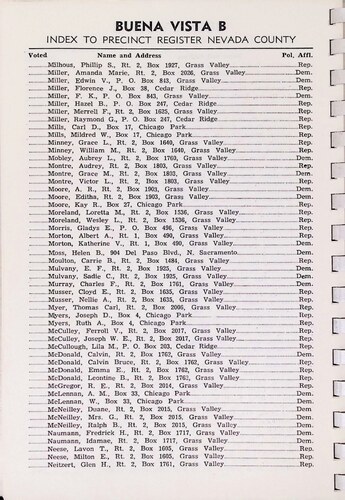 BUENA VISTA B
INDEX TO PRECINCT REGISTER NEVADA COUNTY
Voted Name and Address Pol. Affl.
Milhous, Phillip S., Rt. 2, Box 1927, Grass Valley Rep.
Miller, Amanda Marie, Rt. 2, Box 2026, Grass Valley Dem.
Miller, Edwin V., P. O. Box 843, Grass Valley Dem.
Miller, Florence J., Box 38, Cedar Ridge Rep.
Miller, F. K., P. O. Box 843, Grass Valley Dem.
Miller, Hazel B., P. O. Box 247, Cedar Ridge Rep.
Miller, Merrell F., Rt. 2, Box 1625, Grass Valley Rep.
Miller, Raymond G., P. O. Box 247, Cedar Ridge Rep.
Mills, Carl D., Box 17, Chicago Park Rep.
Mills, Mildred W., Box 17, Chicago Park Rep.
Minney, Grace L., Rt. 2, Box 1640, Grass Valley Rep.
Minney, William M., Rt. 2, Box 1640, Grass Valley Rep.
Mobley, Aubrey L., Rt. 2, Box 1763, Grass Valley Dem.
Montre, Audrey, Rt. 2, Box 1803, Grass Valley Rep.
Montre, Grace M., Rt. 2, Box 1803, Grass Valley Dem.
Montre, Victor L., Rt. 2, Box 1803, Grass Valley Rep.
Moore, A. R., Rt. 2, Box 1903, Grass Valley Dem.
Moore, Editha, Rt. 2, Box 1903, Grass Valley Dem.
Moore, Kay R., Box 27, Chicago Park Rep.
Moreland, Loretta M., Rt. 2, Box 1536, Grass Valley Rep.
Moreland, Wesley L., Rt. 2, Box 1536, Grass Valley Rep.
Morris, Gladys E., P. O. Box 496, Grass Valley Rep.
Morton, Albert A., Rt. 1, Box 490, Grass Valley Rep.
Morton, Katherine V., Rt. 1, Box 490, Grass Valley Dem.
Moss, Helen B., 904 Del Paso Blvd., N. Sacramento Dem.
Moulton, Carrie B., Rt. 2, Box 1484, Grass Valley Rep.
Mulvany, E. F., Rt. 2, Box 1925, Grass Valley Dem.
Mulvany, Sadie C., Rt. 2, Box 1925, Grass Valley Dem.
Murray, Charles F., Rt. 2, Box 1761, Grass Valley Dem.
Musser, Cloyd E., Rt. 2, Box 1635, Grass Valley Rep.
Musser, Nellie A., Rt. 2, Box 1635, Grass Valley Rep.
Myer, Thomas Carl, Rt. 2, Box 2066, Grass Valley Dem.
Myers, Joseph D., Box 4, Chicago Park Rep.
Myers, Ruth A., Box 4, Chicago Park Rep.
McCulley, Ferroll V., Rt. 2, Box 2017, Grass Valley Rep.
McCulley, Joseph W. E., Rt. 2, Box 2017, Grass Valley Rep.
McCullough, Lila M., P. O. Box 203, Cedar Ridge Rep.
McDonald, Calvin, Rt. 2, Box 1762, Grass Valley Dem.
McDonald, Calvin Bruce, Rt. 2, Box 1762, Grass Valley Rep.
McDonald, Emma E., Rt. 2, Box 1762, Grass Valley Rep.
McDonald, Leontine B., Rt. 2, Box 1762, Grass Valley Rep.
McGregor, R. E., Rt. 2, Box 2014, Grass Valley Rep.
McLennan, A. M., Box 33, Chicago Park Dem.
McLennan, W., Box 33, Chicago Park Dem.
McNeilley, Duane, Rt. 2, Box 2015, Grass Valley Dem.
McNeilley, Mrs. G., Rt. 2, Box 2015, Grass Valley Dem.
McNeilley, Ralph B., Rt. 2, Box 2015, Grass Valley Dem.
Naumann, Fredrick H., Rt. 2, Box 1717, Grass Valley Dem.
Naumann, Idamae, Rt. 2, Box 1717, Grass Valley Dem.
Neese, Lavon T., Rt. 2, Box 1605, Grass Valley Rep.
Neese, Milton E., Rt. 2, Box 1605, Grass Valley Rep.
Neitzert, Glen H., Rt. 2, Box 1761, Grass Valley Rep.